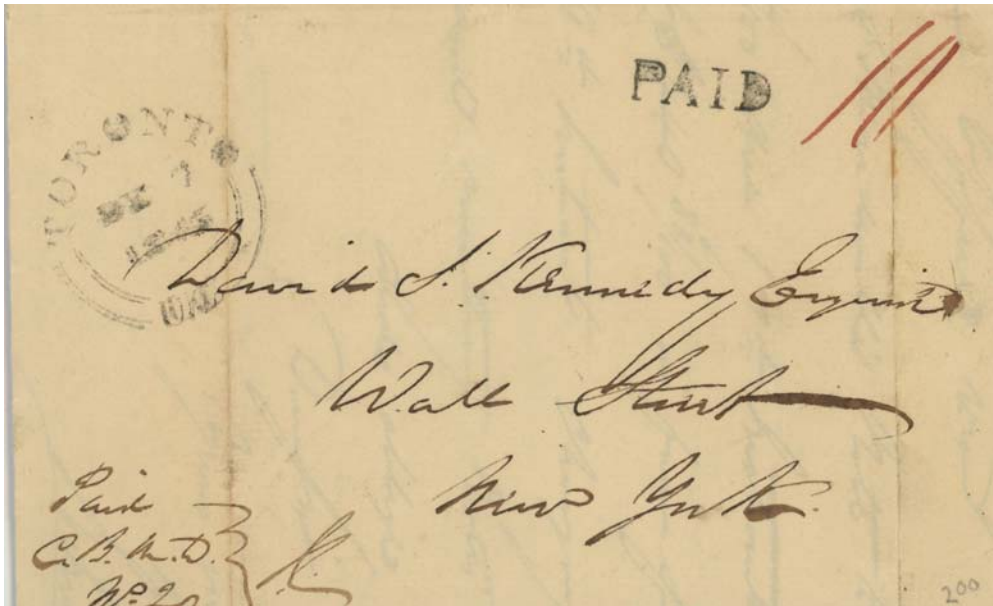 PAID
TORONTO
DE 7
1845
U.C.
David S. Kennedy Esquire
Wall Street
New York.
Paid
C.B.M.D.
No. 2
200